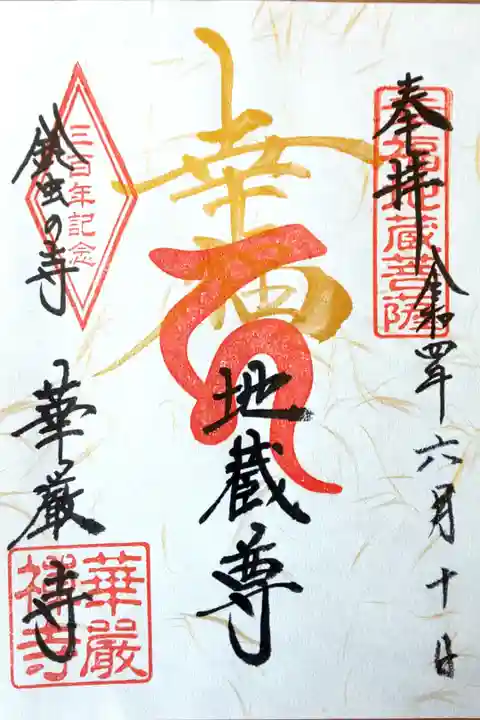 奉拝
幸福地蔵菩薩
令和四年六月十一日
幸福
地蔵尊
三百年記念
鈴虫の寺
華厳寺
華厳禅寺